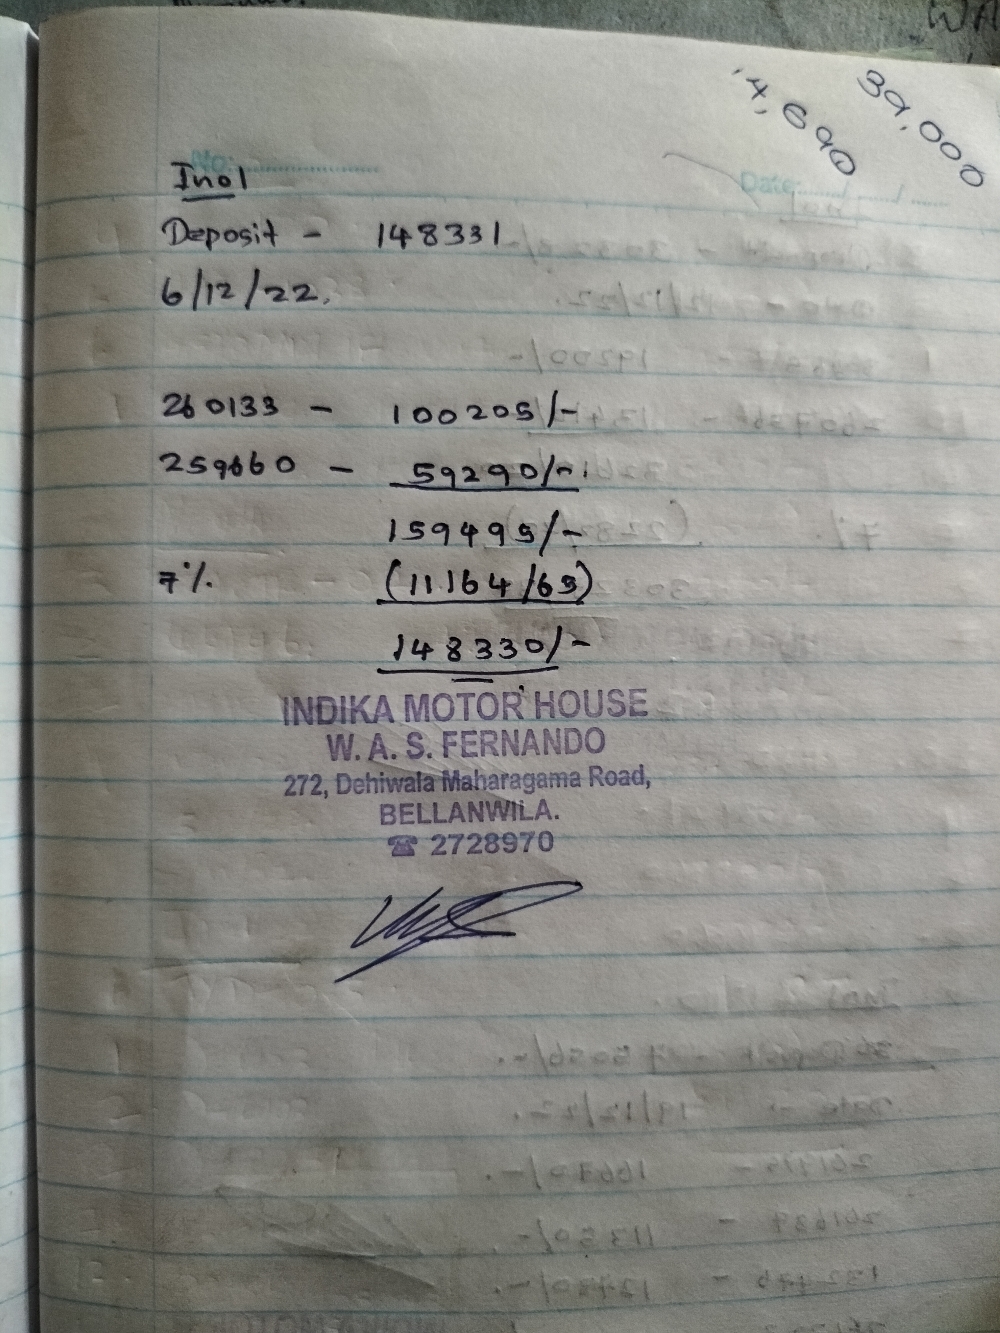 14,690
39,000
No:
Date:
Inol
Deposit - 148331
6/12/22.
260133 - 100205/-
259660 - 59290/-
159495/-
7% (11164/65)
148330/-
INDIKA MOTOR HOUSE
W. A. S. FERNANDO
272, Dehiwala Maharagama Road,
BELLANWILA.
☎ 2728970